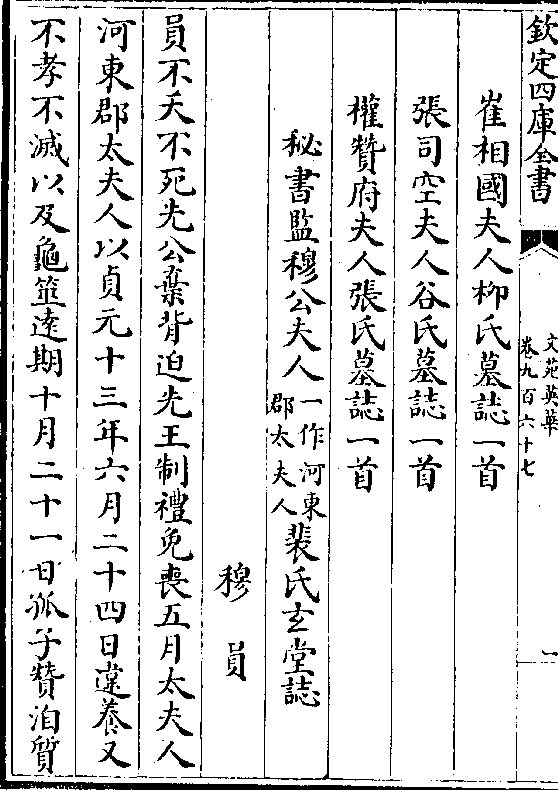 欽定四庫全書
文苑英華
卷九百六十七
一
崔相國夫人柳氏墓誌一首
張司空夫人谷氏墓誌一首
權贊府夫人張氏墓誌一首
秘書監穆公夫人一作河東郡太夫人裴氏玄堂誌
穆員
員不夭不死先公棄背迫先王制禮免喪五月太夫人
河東郡太夫人以貞元十三年六月二十四日違養又
不孝不滅以及龜筮遠期十月二十一日孤子贊洎質